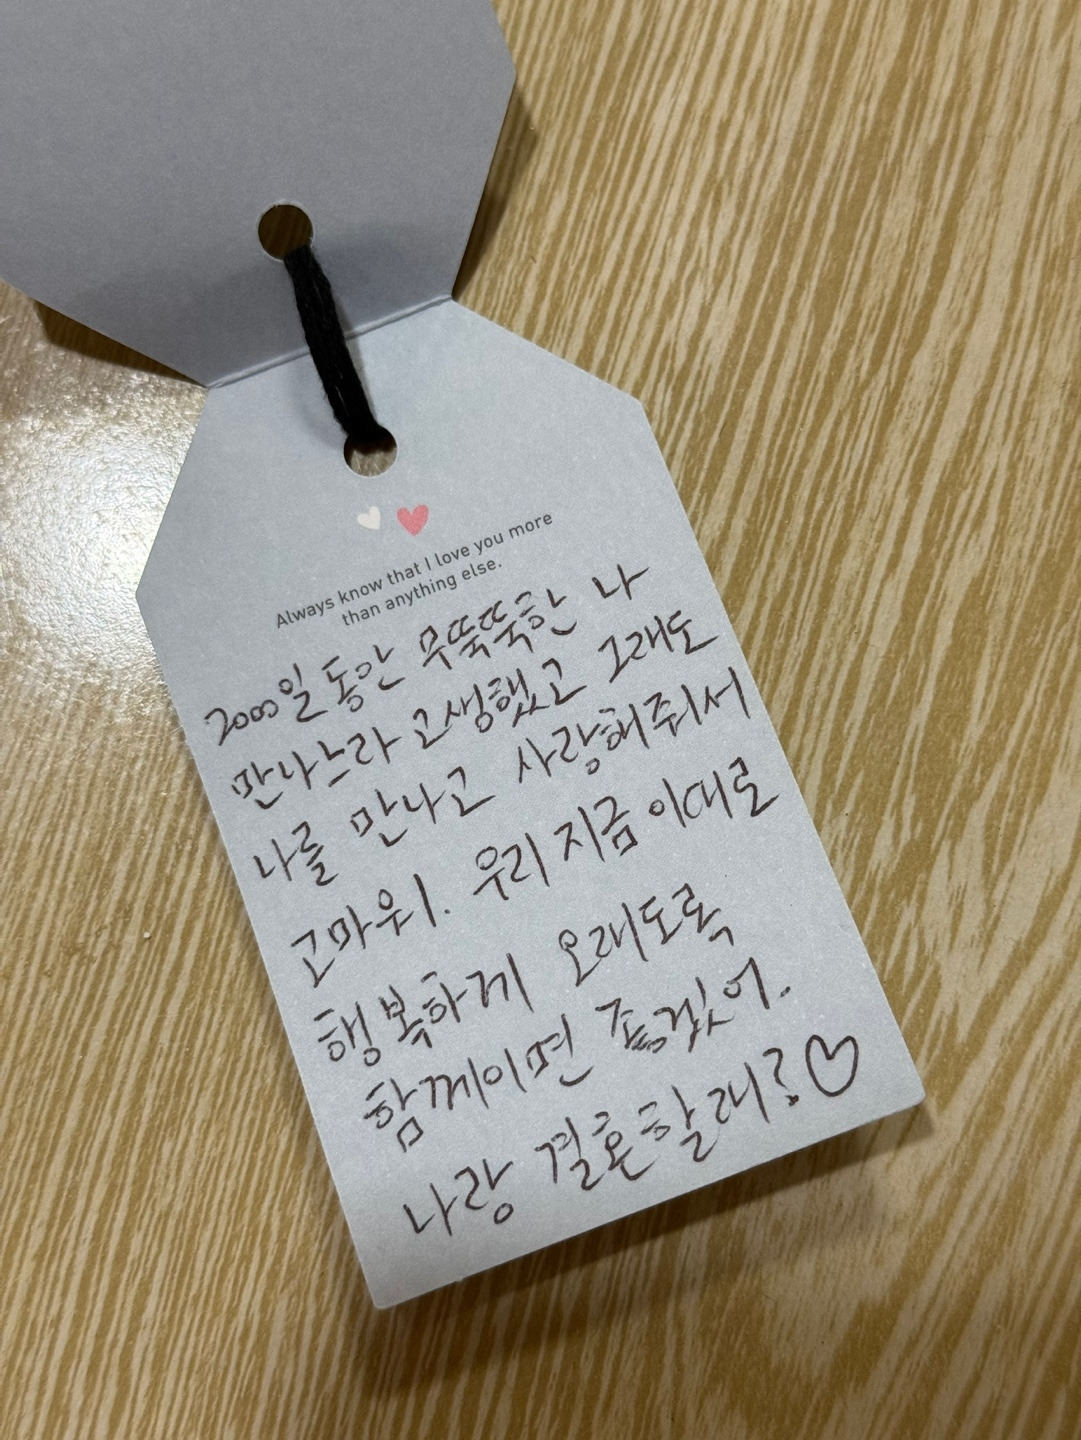 Always know that I love you more
than anything else.
2000일 동안 무뚝뚝한 나
만나느라 고생했고 그래도
나를 만나고 사랑해줘서
고마워. 우리 지금 이대로
행복하게 오래도록
함께이면 좋겠어.
나랑 결혼할래? ♡